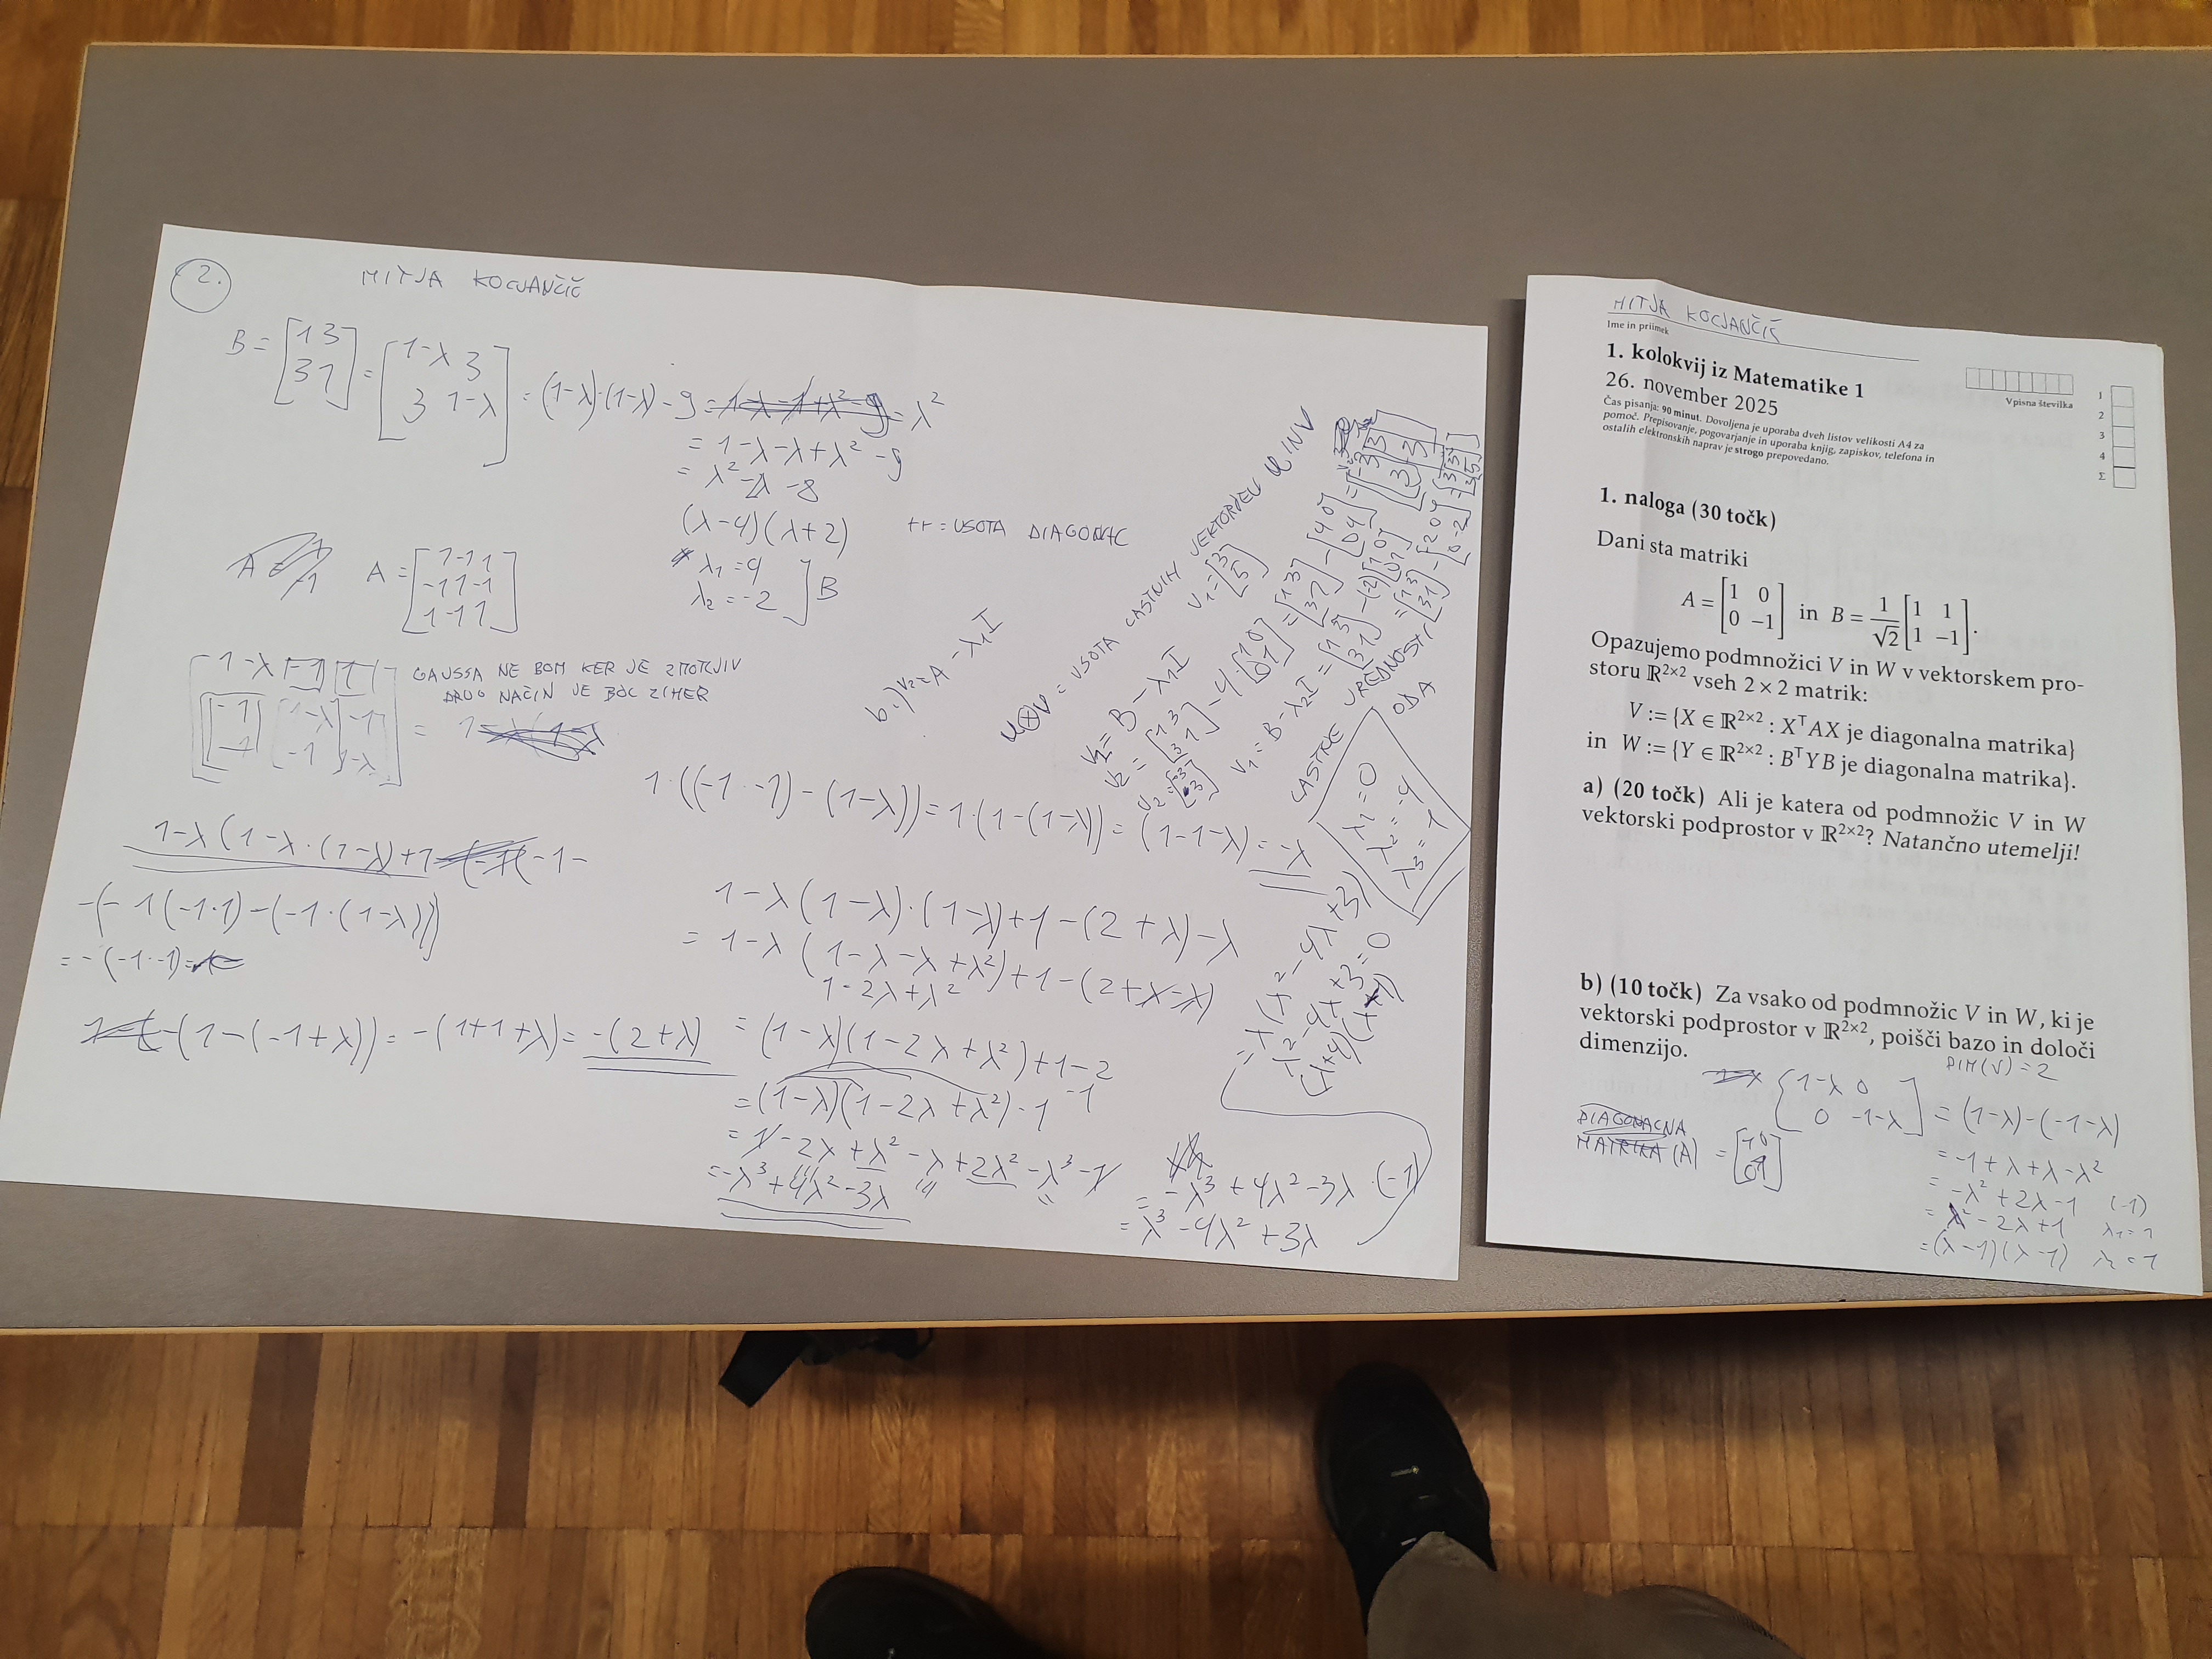 2.
MITJA KOCJANČIČ
B = [1 3; 3 1] = [1-λ 3; 3 1-λ] = (1-λ)·(1-λ) - 9 = λ²
= 1-λ-λ+λ² -9
= λ² -2λ -8
(λ-4)(λ+2)
λ₁ = 4
λ₂ = -2 ] B
tr = USOTA DIAGONAL
A = [1 -1 1; -1 1 -1; 1 -1 1]
GAUSSA NE BOM KER JE ZMOTLJIV
DRUG NAČIN JE BOL ZIHER
1·((-1·-1) - (1-λ)) = 1·(1-(1-λ)) = (1-1-λ) = -λ
1-λ(1-λ·(1-λ)+1
-(-1(-1·1)-(-1·(1-λ)))
= -(-1·-1)
-(1-(-1+λ)) = -(1+1+λ) = -(2+λ)
1-λ(1-λ)·(1-λ)+1-(2+λ)-λ
= 1-λ(1-λ-λ+λ²)+1-(2+λ-λ)
1-2λ+λ²
= (1-λ)(1-2λ+λ²)+1-2
= (1-λ)(1-2λ+λ²)-1
= 1-2λ+λ²-λ+2λ²-λ³-1
= -λ³+4λ²-3λ
= -λ³+4λ²-3λ ·(-1)
= λ³-4λ²+3λ
= λ(λ²-4λ+3)
λ²-4λ+3=0
b.) v₂ = A - λ₁I
u⊗v = USOTA LASTNIH VEKTORJEV U IN V
V₁ = B - λ₁I
V₁ = B - λ₂I
LASTNE VREDNOSTI
OD A
λ₁ = 0
λ₂ = -4
λ₃ = 1
MITJA KOCJANČIČ
Ime in priimek
1. kolokvij iz Matematike 1
26. november 2025
Čas pisanja: 90 minut. Dovoljena je uporaba dveh listov velikosti A4 za
pomoč. Prepisovanje, pogovarjanje in uporaba knjig, zapiskov, telefona in
ostalih elektronskih naprav je strogo prepovedano.
Vpisna številka
1
2
3
4
Σ
1. naloga (30 točk)
Dani sta matriki
A = [1 0; 0 -1] in B = 1/√2 [1 1; 1 -1].
Opazujemo podmnožici V in W v vektorskem pro-
storu ℝ²ˣ² vseh 2 × 2 matrik:
V := {X ∈ ℝ²ˣ² : XᵀAX je diagonalna matrika}
in W := {Y ∈ ℝ²ˣ² : BᵀYB je diagonalna matrika}.
a) (20 točk) Ali je katera od podmnožic V in W
vektorski podprostor v ℝ²ˣ²? Natančno utemelji!
b) (10 točk) Za vsako od podmnožic V in W, ki je
vektorski podprostor v ℝ²ˣ², poišči bazo in določi
dimenzijo.
DIM(V) = 2
[1-λ 0; 0 -1-λ] = (1-λ)-(-1-λ)
= -1+λ+λ-λ²
= -λ²+2λ-1 (-1)
= λ²-2λ+1 λ₁=1
= (λ-1)(λ-1) λ₂=1
DIAGONALNA
MATRIKA (A) = [1 0; 0 1]